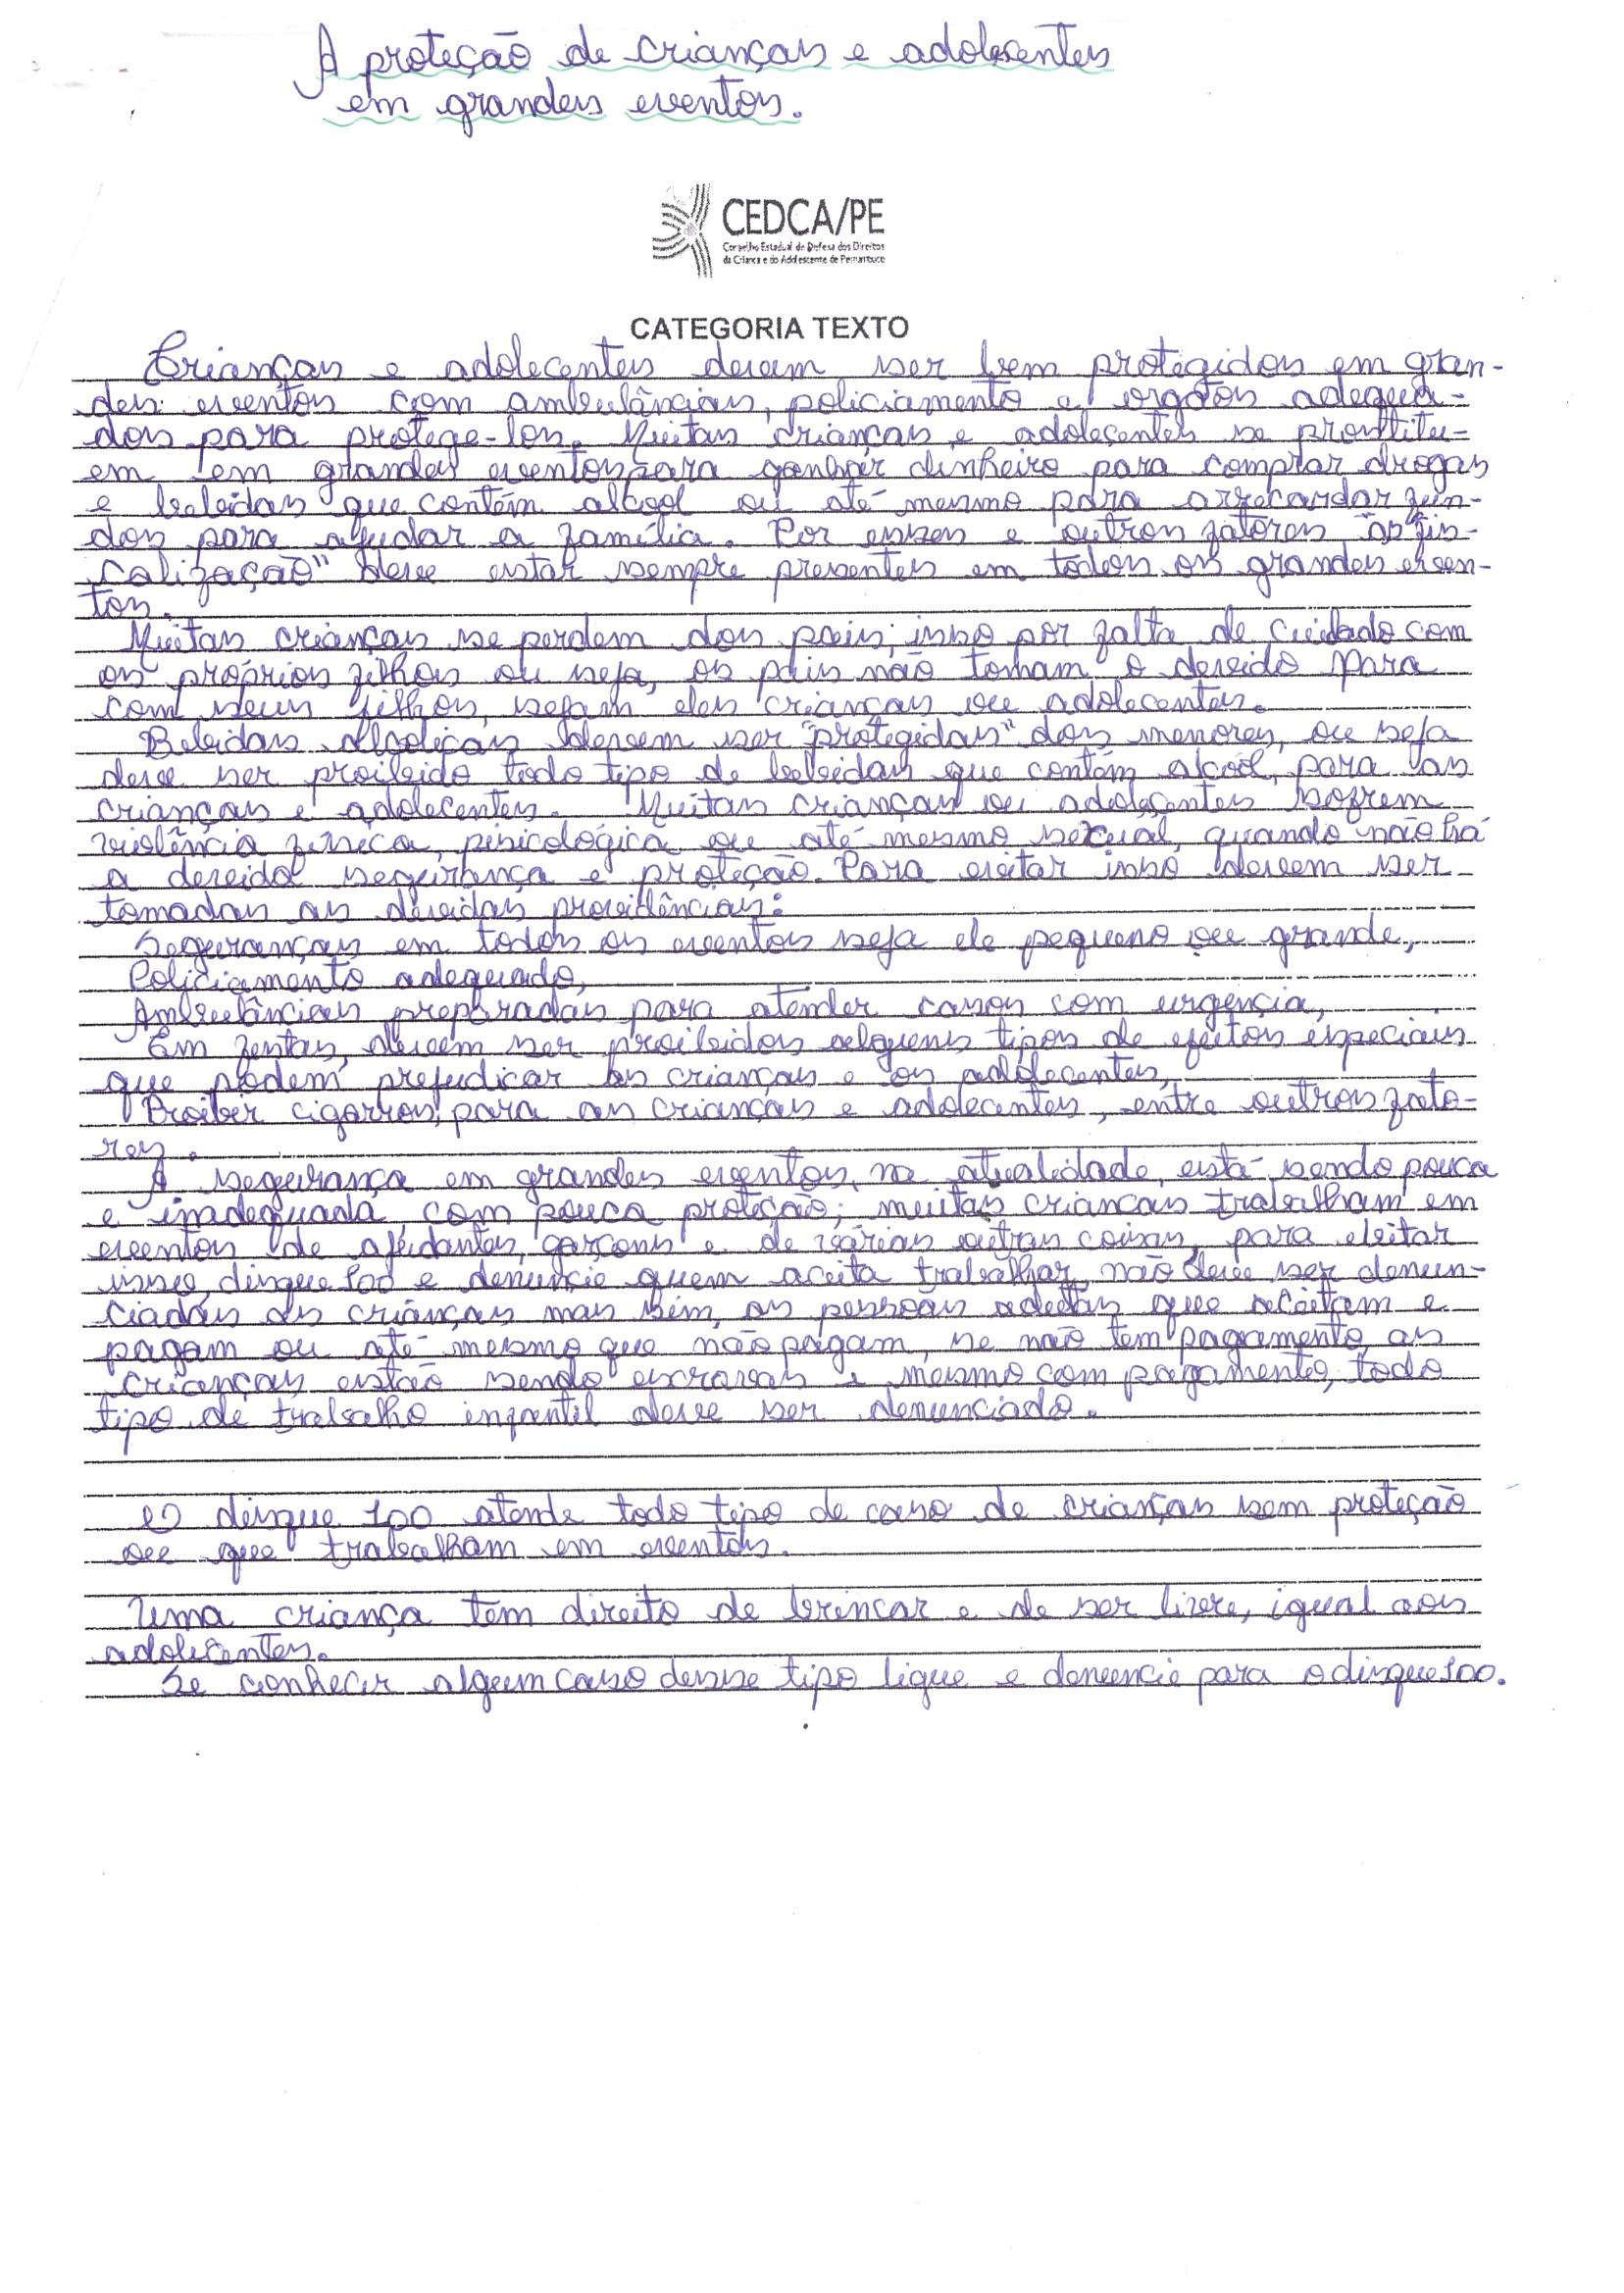 A proteção de crianças e adolecentes
em grandes eventos.
CEDCA/PE
Conselho Estadual de Defesa dos Direitos
da Criança e do Adolescente de Pernambuco
CATEGORIA TEXTO
Crianças e adolecentes devem ser bem protegidos em gran-
des eventos com ambulâncias, policiamento e orgãos adequa-
dos para protege-los. Muitas crianças e adolecentes se prostitu-
em em grandes eventos para ganhar dinheiro para comprar drogas
e bebidas que contém alcool ou até mesmo para arrecardar fun-
dos para ajudar a família. Por esses e outros fatores "as fis-
calização" deve estar sempre presentes em todos os grandes even-
tos.
Muitas crianças se perdem dos pais; isso por falta de cuidado com
os próprios filhos ou seja, os pais não tomam o devido para
com seus filhos, sejam eles crianças ou adolecentes.
Bebidas alcolicas devem ser "protegidas" dos menores, ou seja
deve ser proibido todo tipo de bebidas que contém alcool, para as
crianças e adolecentes. Muitas crianças ou adolecentes sofrem
violência fisica, pisicológica ou até mesmo sexual, quando não há
a devida segurança e proteção. Para evitar isso devem ser
tomadas as devidas providências:
Seguranças em todos os eventos seja ele pequeno ou grande,
Policiamento adequado,
Ambulâncias preparadas para atender casos com urgência,
Em festas, devem ser proibidos alguns tipos de efeitos especiais
que podem prejudicar as crianças e os adolecentes,
Proiber cigarros, para as crianças e adolecentes, entre outros fato-
res.
A segurança em grandes eventos, na atualidade, está sendo pouca
e inadequada, com pouca proteção; muitas criancas trabalham em
eventos de ajudantes, garçons e de várias outras coisas, para evitar
isso, disque 100 e denuncie quem aceita trabalhar, não deve ser denun-
ciadas as crianças mas sim, as pessoas adultas que aceitam e
pagam ou até mesmo que não pagam, se não tem pagamento, as
crianças estão sendo escravas e mesmo com pagamento, todo
tipo de trabalho infantil deve ser denunciado.
O disque 100 atende todo tipo de caso de crianças sem proteção
ou que trabalham em eventos.
Uma criança tem direito de brincar e de ser livre, igual aos
adolecentes.
Se conhecer algum caso desse tipo ligue e denuncie para o disque 100.